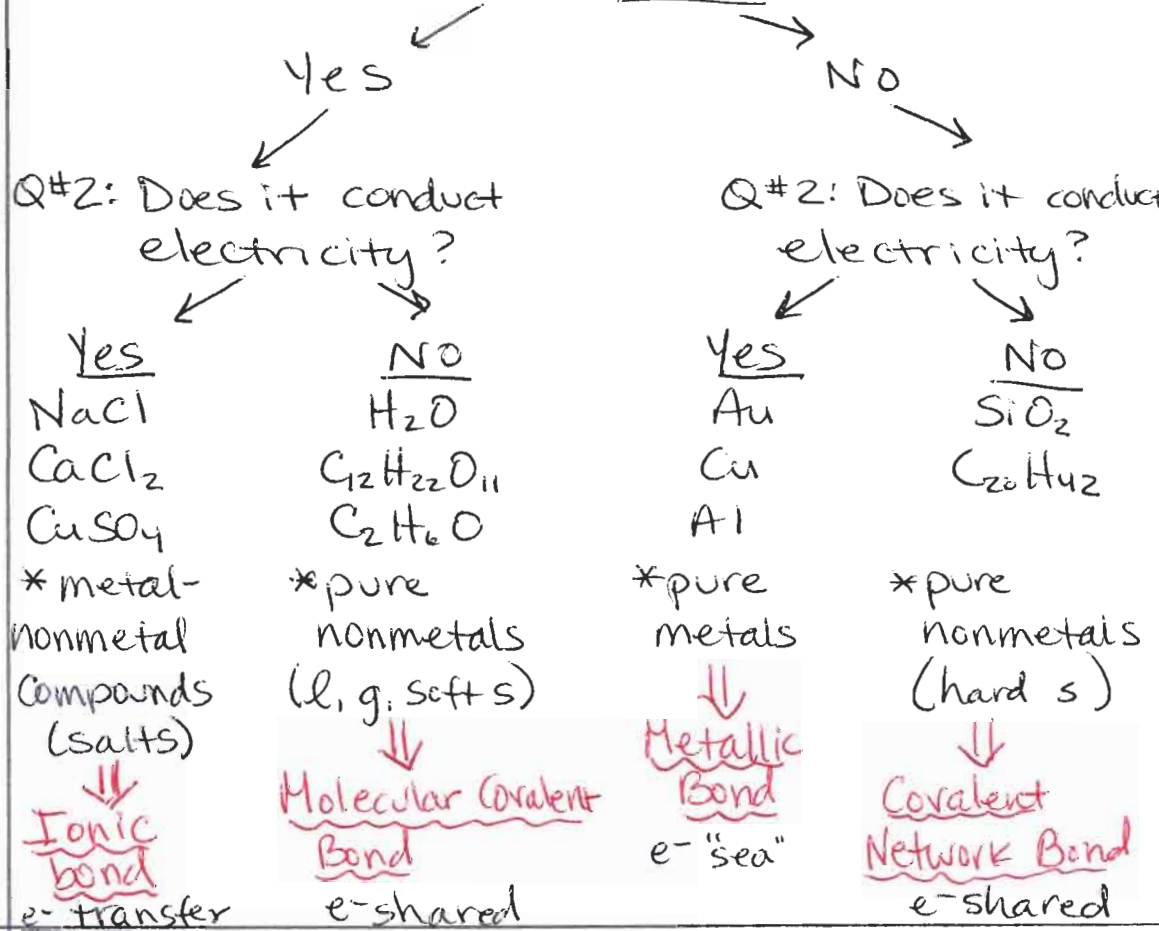 Yes
No
Q#2: Does it conduct
electricity?
Q#2: Does it conduct
electricity?
Yes
NaCl
CaCl₂
CuSO₄
* metal-
nonmetal
compounds
(salts)
Ionic
bond
e- transfer
NO
H₂O
C₁₂H₂₂O₁₁
C₂H₆O
*pure
nonmetals
(l, g, soft s)
Molecular Covalent
Bond
e-shared
Yes
Au
Cu
Al
*pure
metals
Metallic
Bond
e- "sea"
No
SiO₂
C₂₀H₄₂
*pure
nonmetals
(hard s)
Covalent
Network Bond
e-shared